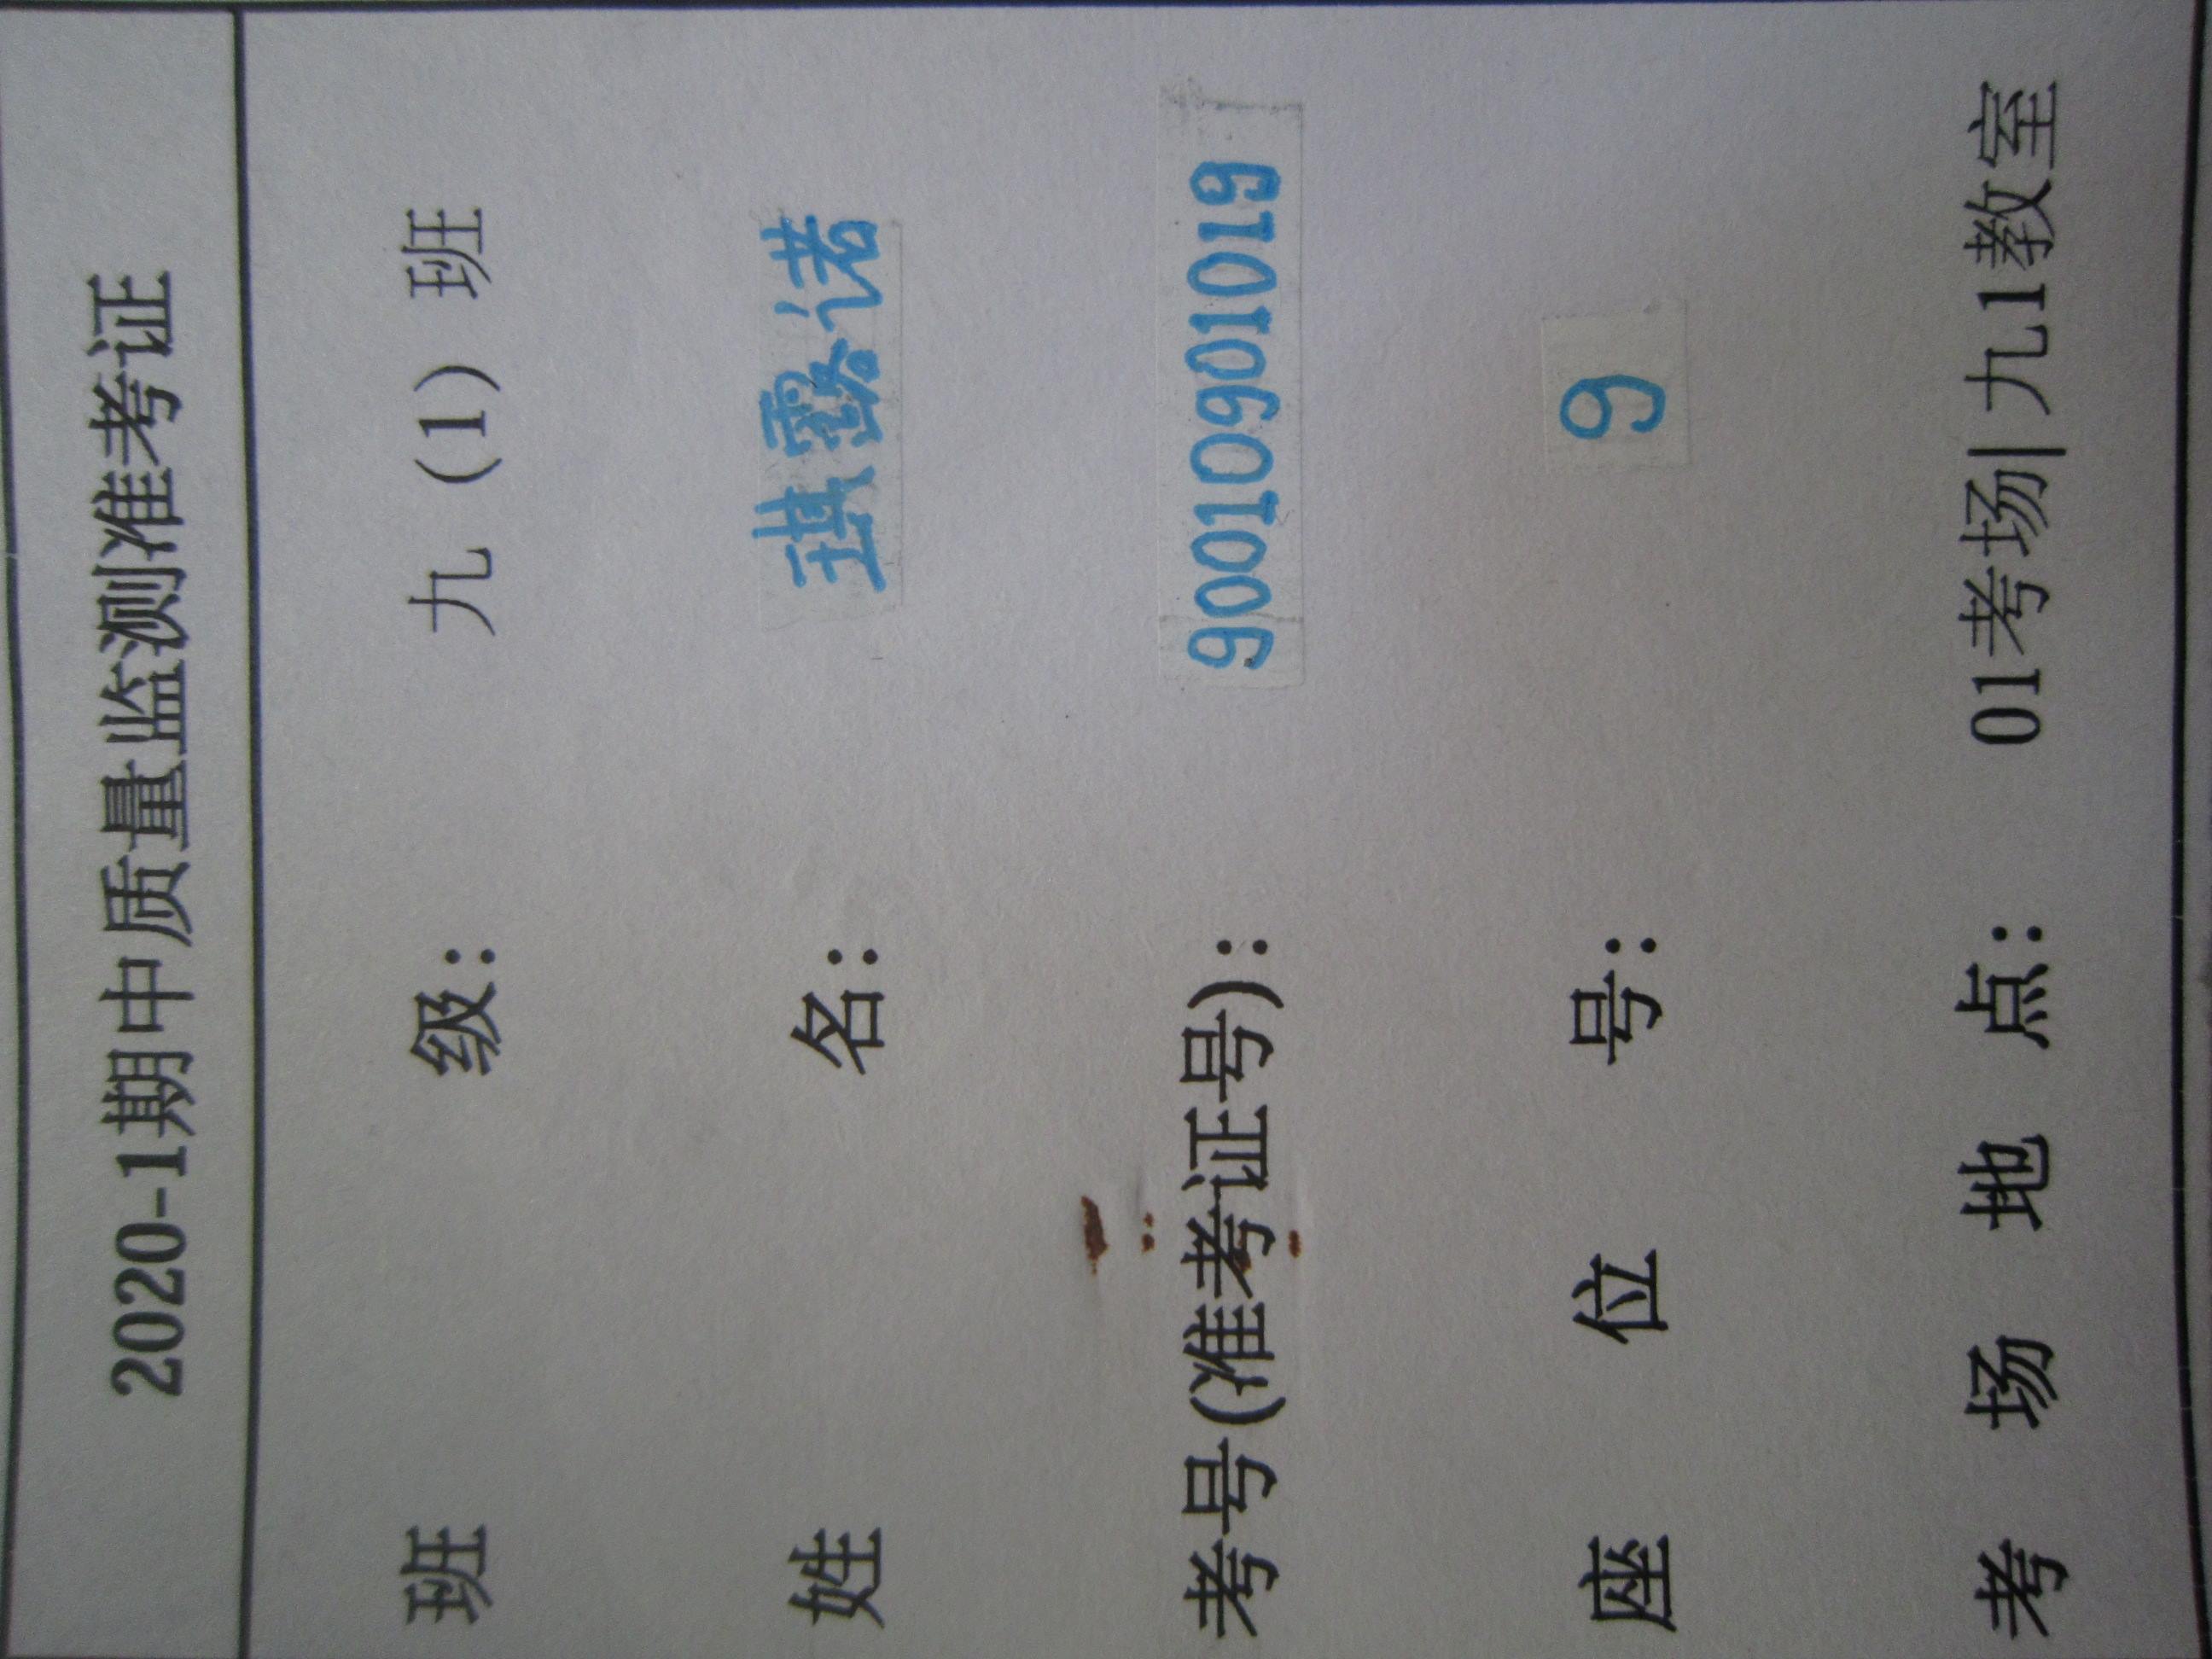 2020-1期中质量监测准考证
班 级: 九 (1) 班
姓 名: 琪露诺
考号(准考证号): 90010901019
座 位 号: 9
考 场 地 点: 01考场|九1教室